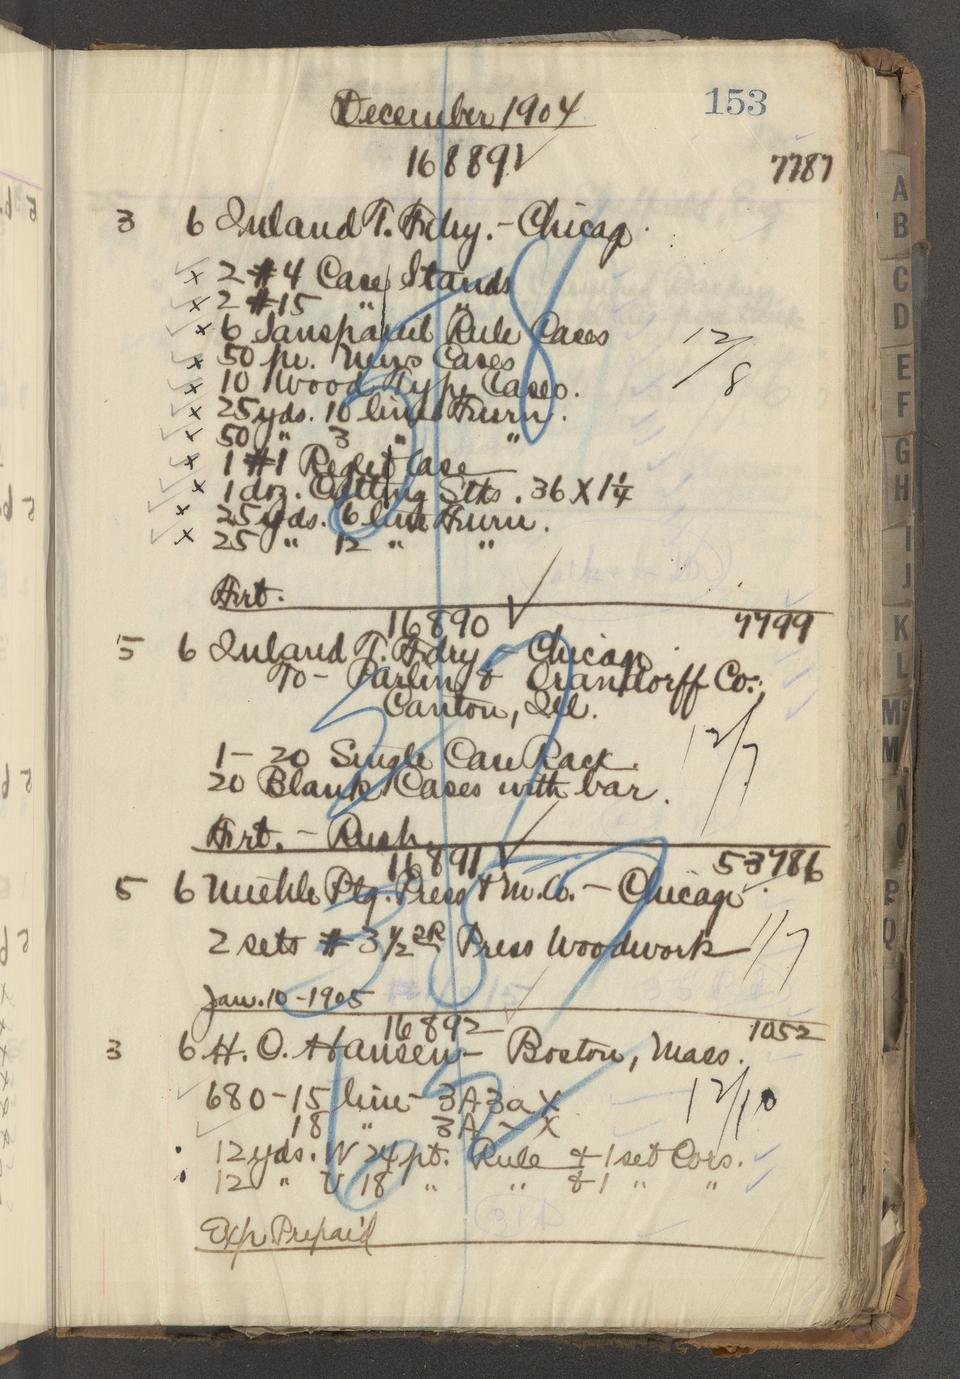 December 1904
153
16889 ✓
7787
3 6 Inland T. Fdry. - Chicago
✓ x 2 #4 Case Stands
✓ x 2 #15 " "
✓ x 6 Rule Cases
12/8
✓ x 50 pr. News Cases
✓ x 10 Wood Type Cases.
✓ x 25 yds. 10 line Furn.
✓ x 50 " 3 " "
✓ x 1 #1 Reglet Case
✓ x 1 doz. Cutting Stks. 36 X 1¼
✓ x 25 yds. 6 line Furn.
✓ x 25 " 12 " "
Frt.
16890 ✓
7799
5 6 Inland T. Fdry - Chicago
To - Parlin & Orandorff Co.,
Canton, Ill.
1 - 20 Single Case Rack.
12/7
20 Blank Cases with bar.
Frt. - Rush.
16891 ✓
53786
5 6 Miehle Ptg. Press & M. Co. - Chicago
2 sets # 3½ 2R Press Woodwork
1/7
Jan. 10 - 1905
16892
1052
3 6 H. O. Hansen - Boston, Mass.
✓ 680 - 15 line - 3A 3a X
12/10
✓ 18 " 3A ~ X
12 yds. N 24 pt. Rule & 1 set Cors.
12 " U 18 " " & 1 " "
Exp. Prepaid
A
B
C
D
E
F
G
H
I
J
K
L
Mc
M
N
O
P
Q